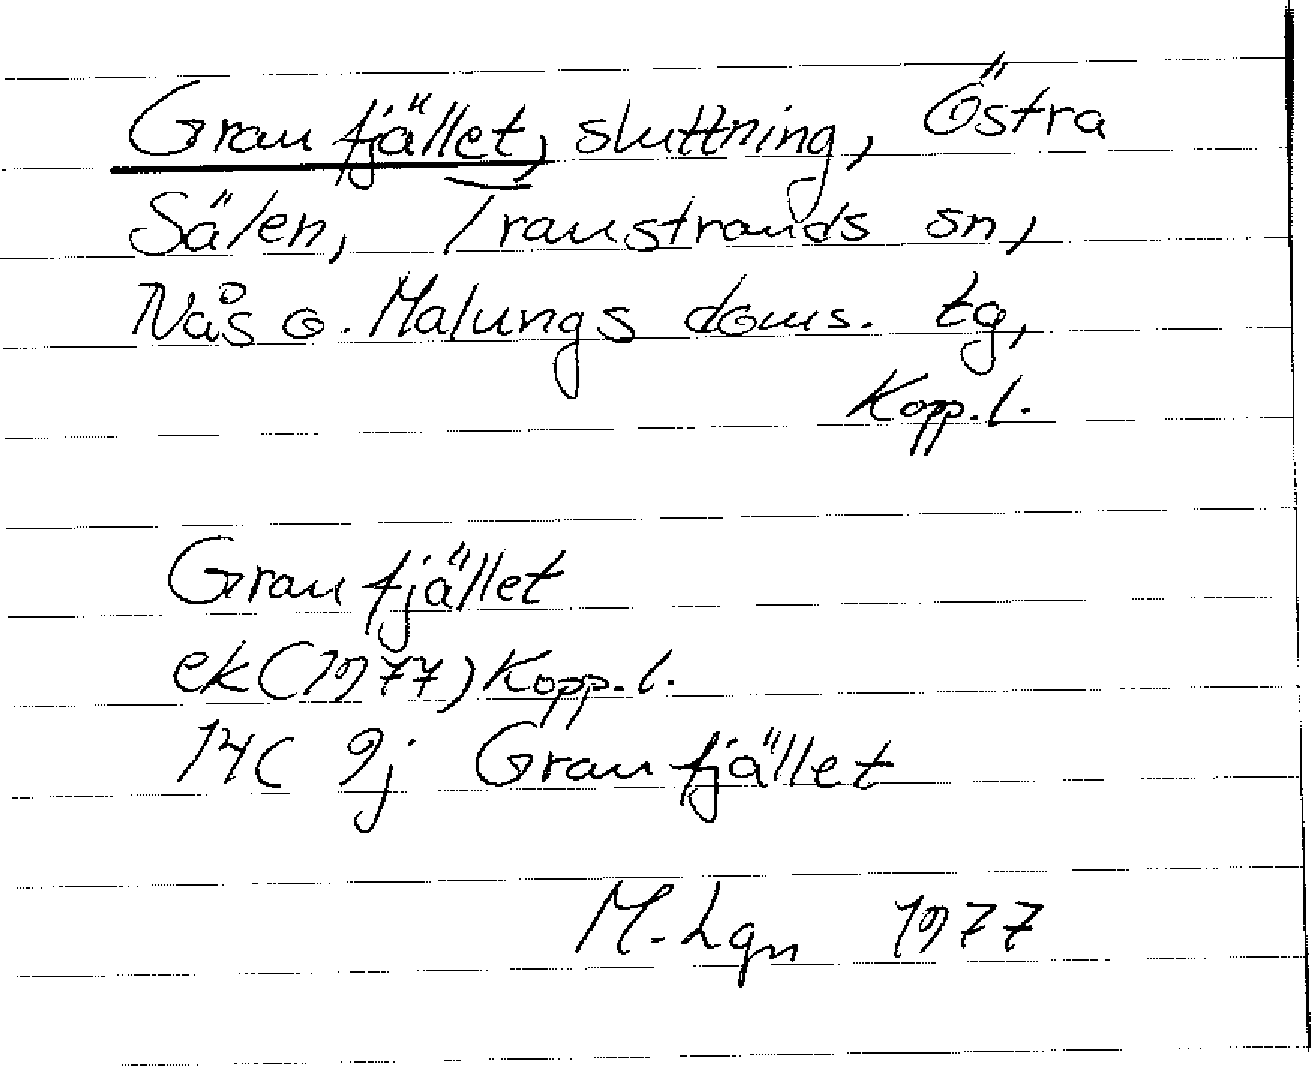 Granfjället, sluttning, Östra
Sälen, Transtrands sn,
Nås o. Malungs doms. tg,
Kopp. l.
Granfjället
ek (1977) Kopp. l.
14C 9j Granfjället
M. Lgn 1977